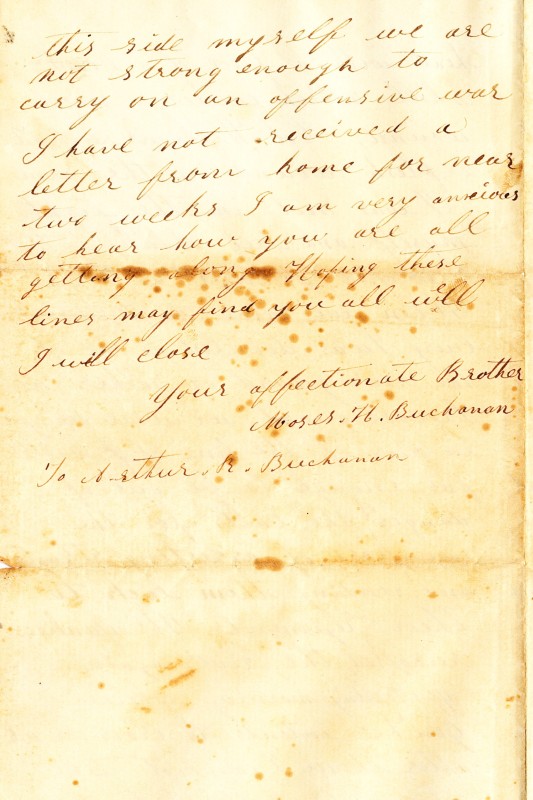 this side myself we are
not strong enough to
carry on an offensive war
I have not received a
letter from home for near
two weeks I am very anxious
to hear how you are all
getting along Hoping these
lines may find you all well
I will close
Your affectionate Brother
Moses. H. Buchanan
To Arthur. R. Buchanan